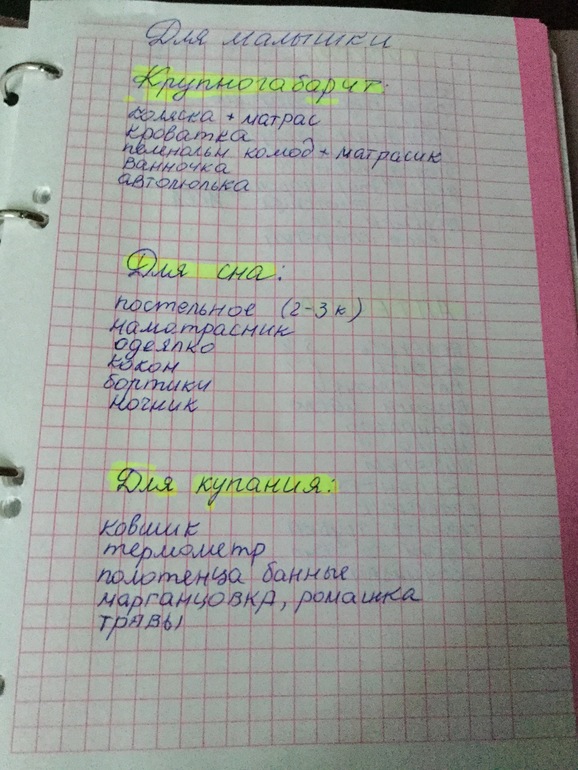 Для малышки
Крупногабарит:
коляска + матрас
кроватка
пеленальн комод + матрасик
ванночка
автолюлька
Для сна:
постельное (2-3 к)
наматрасник
одеялко
кокон
бортики
ночник
Для купания:
ковшик
термометр
полотенца банные
марганцовка, ромашка
травы